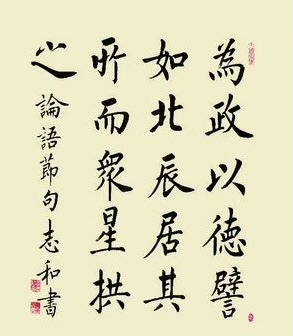 為政以德譬
如北辰居其
所而眾星拱
之
論語節句志和書